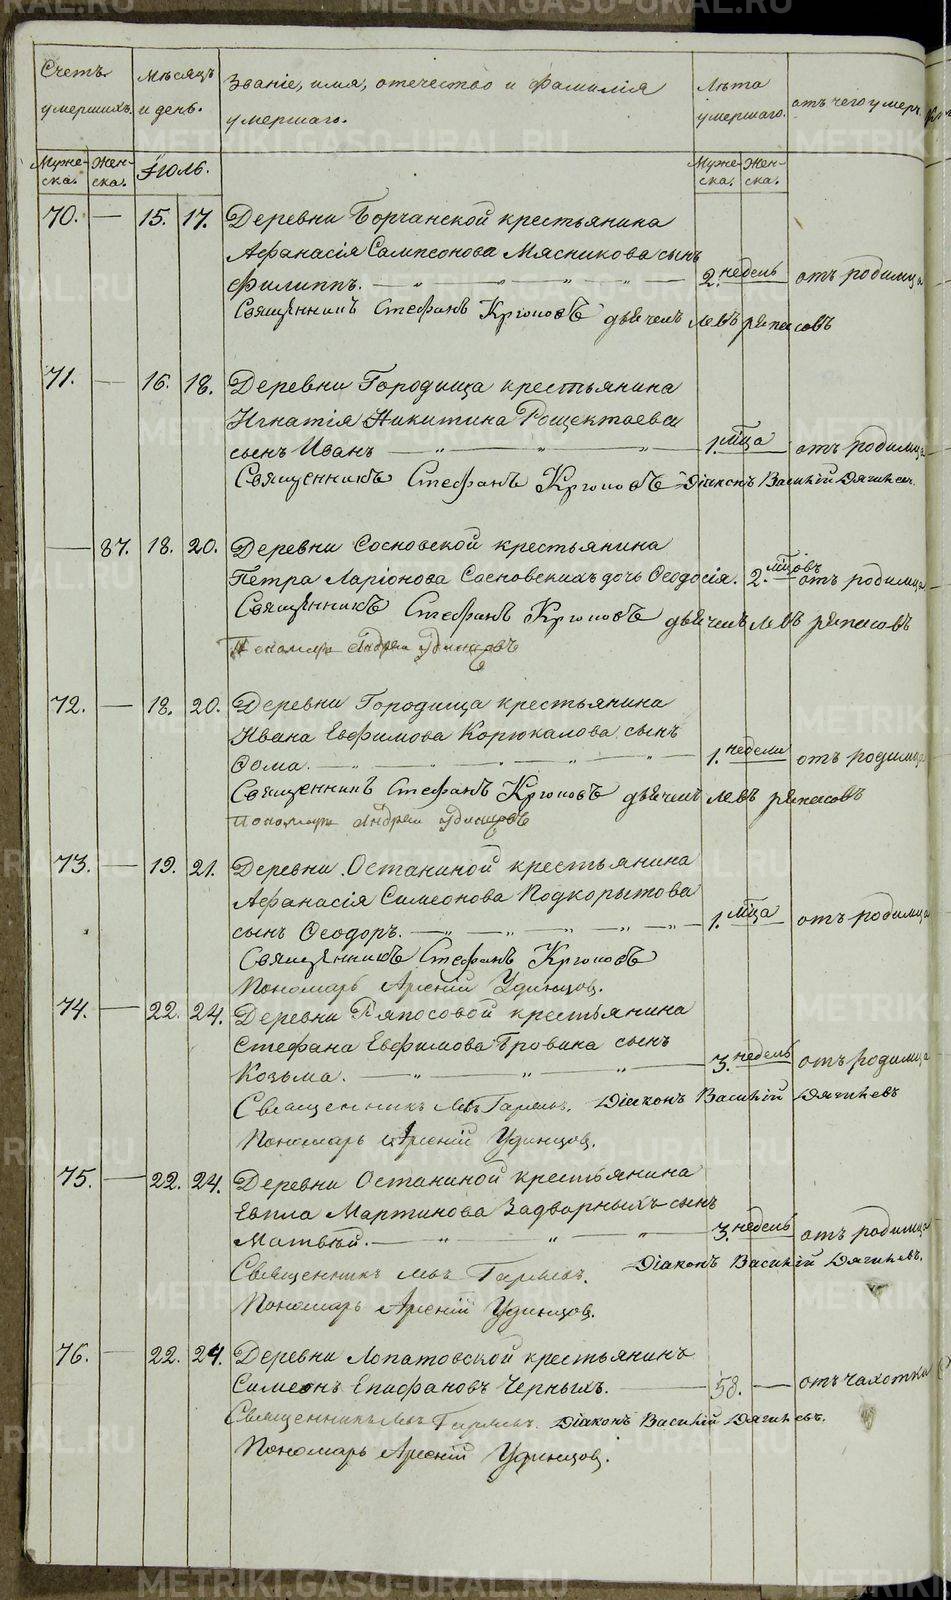 Счетъ умершихъ. Мѣсяцъ и день. Званіе, имя, отечество и фамилія умершаго. Лѣта умершаго. отъ чего умеръ.
Муже-ска. Жен-ска. Іюль. Муже-ска. Жен-ска.
70. — 15. 17. Деревни Борчанской крестьянина
Афанасія Сампсонова Мясникова сынъ
Филиппъ. — 2. недель отъ родимца
Священникъ Стефанъ Крюковъ дьячекъ Левъ Ряпасовъ
71. — 16. 18. Деревни Городища крестьянина
Игнатія Никитина Рощектаева
сынъ Иванъ — 1. мца отъ родимца
Священникъ Стефанъ Крюковъ Діаконъ Василій Дягилевъ
— 87. 18. 20. Деревни Сосновской крестьянина
Петра Ларіонова Сосновскихъ дочь Ѳеодосія. 2. мцовъ отъ родимца
Священникъ Стефанъ Крюковъ дьячекъ Левъ Ряпасовъ
Пономарь Андрей Удинцовъ
72. — 18. 20. Деревни Городища крестьянина
Ивана Евфимова Корюкалова сынъ
Ѳома. — 1. недели отъ родимца
Священникъ Стефанъ Крюковъ дьячекъ Левъ Ряпасовъ
Пономарь Андрей Удинцовъ
73. — 19. 21. Деревни Останиной крестьянина
Афанасія Симеонова Подкорытова
сынъ Ѳеодоръ. — 1. мца отъ родимца
Священникъ Стефанъ Крюковъ
Пономарь Арсеній Удинцов.
74. — 22. 24. Деревни Ряпосовой крестьянина
Стефана Евфимова Бровина сынъ
Козьма. 3. недель отъ родимца
Священникъ Левъ Діаконъ Василій Дягилевъ
Пономарь Арсеній Удинцов.
75. — 22. 24. Деревни Останиной крестьянина
Евпла Мартинова Задворныхъ сынъ
Матвѣй. — 3. недель отъ родимца
Священникъ Левъ Діаконъ Василій Дягилевъ.
Пономарь Арсеній Удинцов.
76. — 22. 24. Деревни Лопатовской крестьянинъ
Симеонъ Епифановъ Черныхъ. — 58. — отъ чахотки
Священникъ Левъ Діаконъ Василій Дягилевъ.
Пономарь Арсеній Удинцов.
METRIKI.GASO-URAL.RU